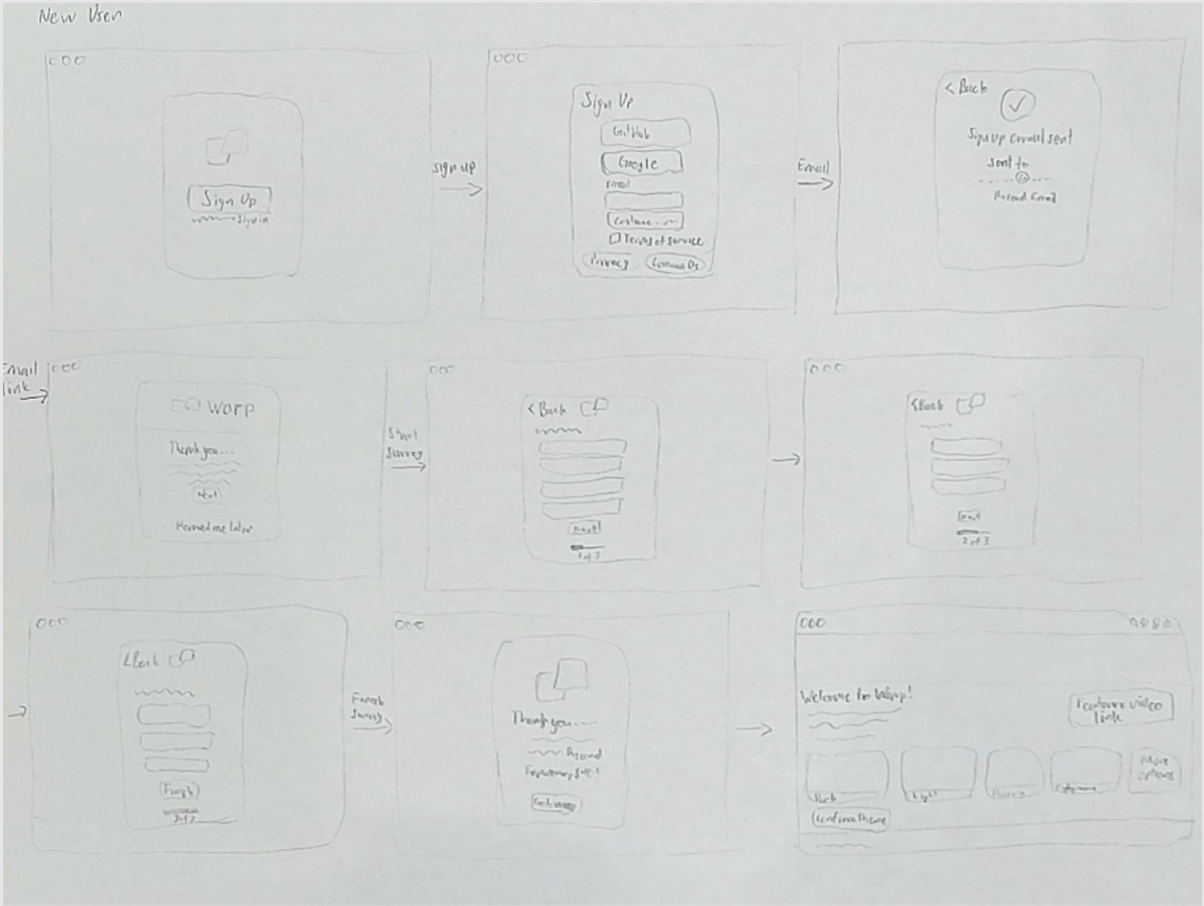 New User
Sign Up
Sign in
Sign up
Sign Up
GitHub
Google
Email
Continue
Terms of service
Privacy
Email
< Back
Sign up email sent
Sent to
@
Resend Email
Email
link
Warp
Thank you...
Next
Remind me later
Start
Survey
< Back
Next
1 of 3
< Back
Next
2 of 3
< Back
Finish
3 of 3
Finish
Survey
Thank you....
Welcome to Warp!
Feature video
link
Dark
Light
More
options
Confirm theme